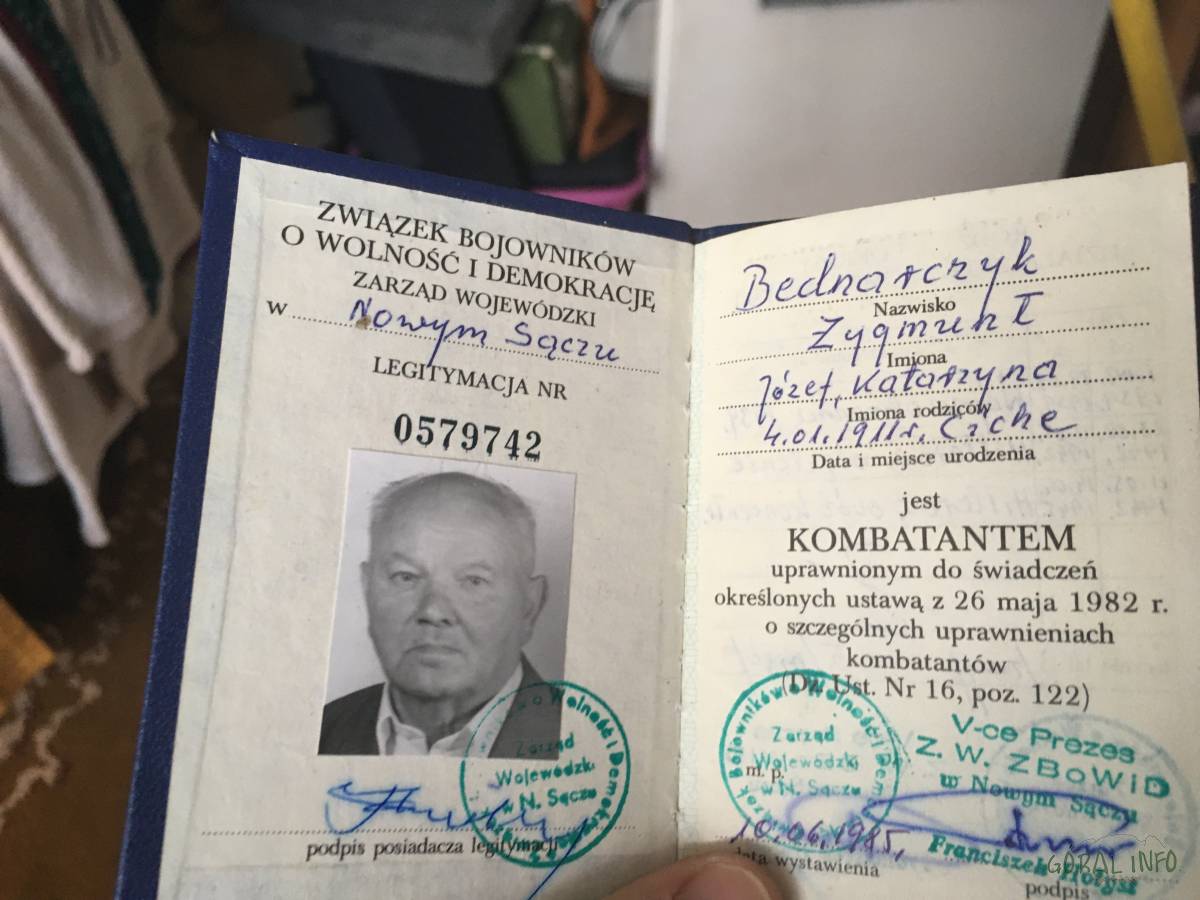 ZWIĄZEK BOJOWNIKÓW
O WOLNOŚĆ I DEMOKRACJĘ
ZARZĄD WOJEWÓDZKI
w Nowym Sączu
LEGITYMACJA NR
0579742
Zarząd
Wojewódzki
w N. Sączu
podpis posiadacza legitymacji
Bednarczyk
Nazwisko
Zygmunt
Imiona
Józef, Katarzyna
Imiona rodziców
4.01.1911r. Ciche
Data i miejsce urodzenia
jest
KOMBATANTEM
uprawnionym do świadczeń
określonych ustawą z 26 maja 1982 r.
o szczególnych uprawnieniach
kombatantów
(Dz. Ust. Nr 16, poz. 122)
Bojowników o Wolność i Dem
Zarząd
Wojewódzki
w N. Sączu
m. p.
V-ce Prezes
Z. W. ZBoWiD
w Nowym Sączu
Franciszek
10.06.1985,
data wystawienia
podpis
GÓRAL INFO